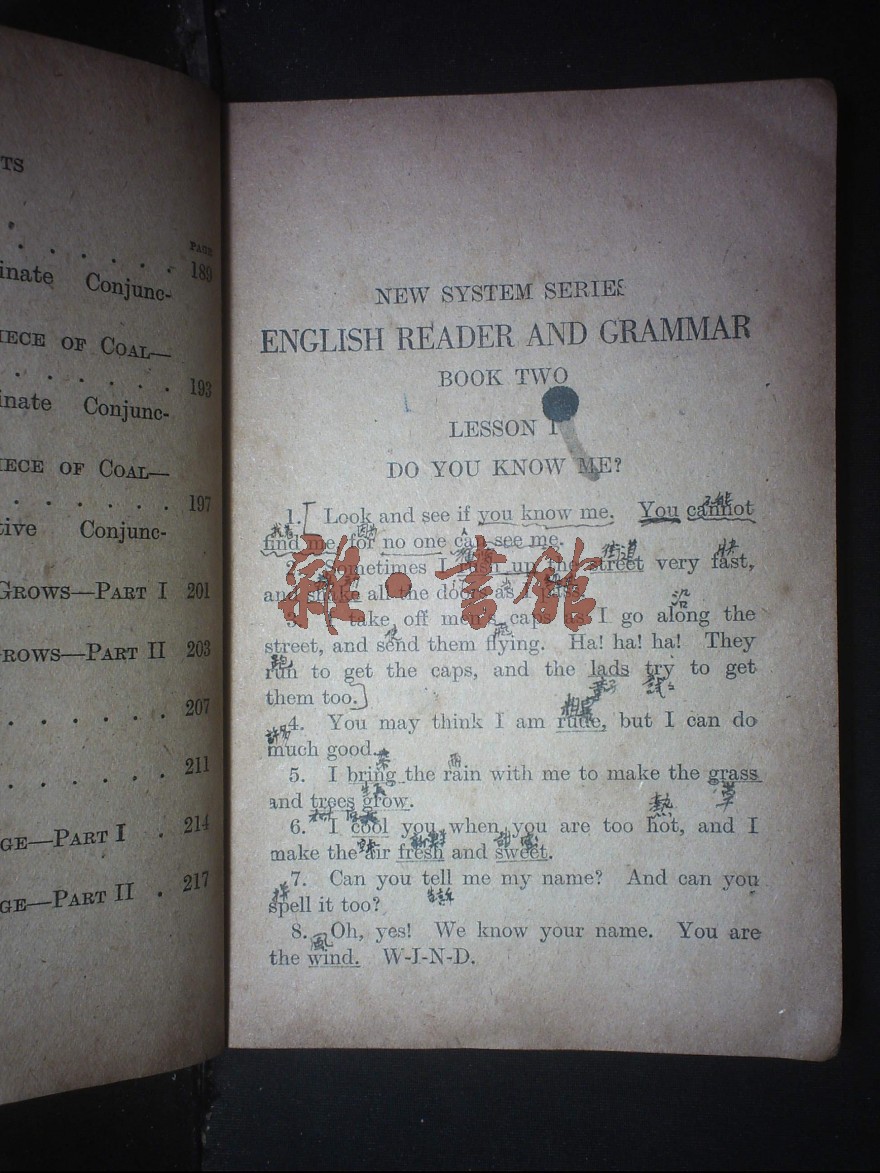 TS
PAGE
189
inate Conjunc-
IECE OF COAL—
193
inate Conjunc-
IECE OF COAL—
197
tive Conjunc-
GROWS—PART I 201
ROWS—PART II 203
207
211
GE—PART I . 214
GE—PART II . 217
NEW SYSTEM SERIES
ENGLISH READER AND GRAMMAR
BOOK TWO
LESSON 1
DO YOU KNOW ME?
1. Look and see if you know me. You cannot
不能
因为
find me, for no one can see me.
街道 快
2. Sometimes I rush up the street very fast,
and shake all the doors as I pass.
沿
3. I take off men's caps as I go along the
street, and send them flying. Ha! ha! ha! They
跑
run to get the caps, and the lads try to get
them too.
4. You may think I am rude, but I can do
許多
much good.
雨
5. I bring the rain with me to make the grass
草
and trees grow.
熱
6. I cool you when you are too hot, and I
make the air fresh and sweet.
7. Can you tell me my name? And can you
告訴
spell it too?
8. Oh, yes! We know your name. You are
風
the wind. W-I-N-D.
雜·書館